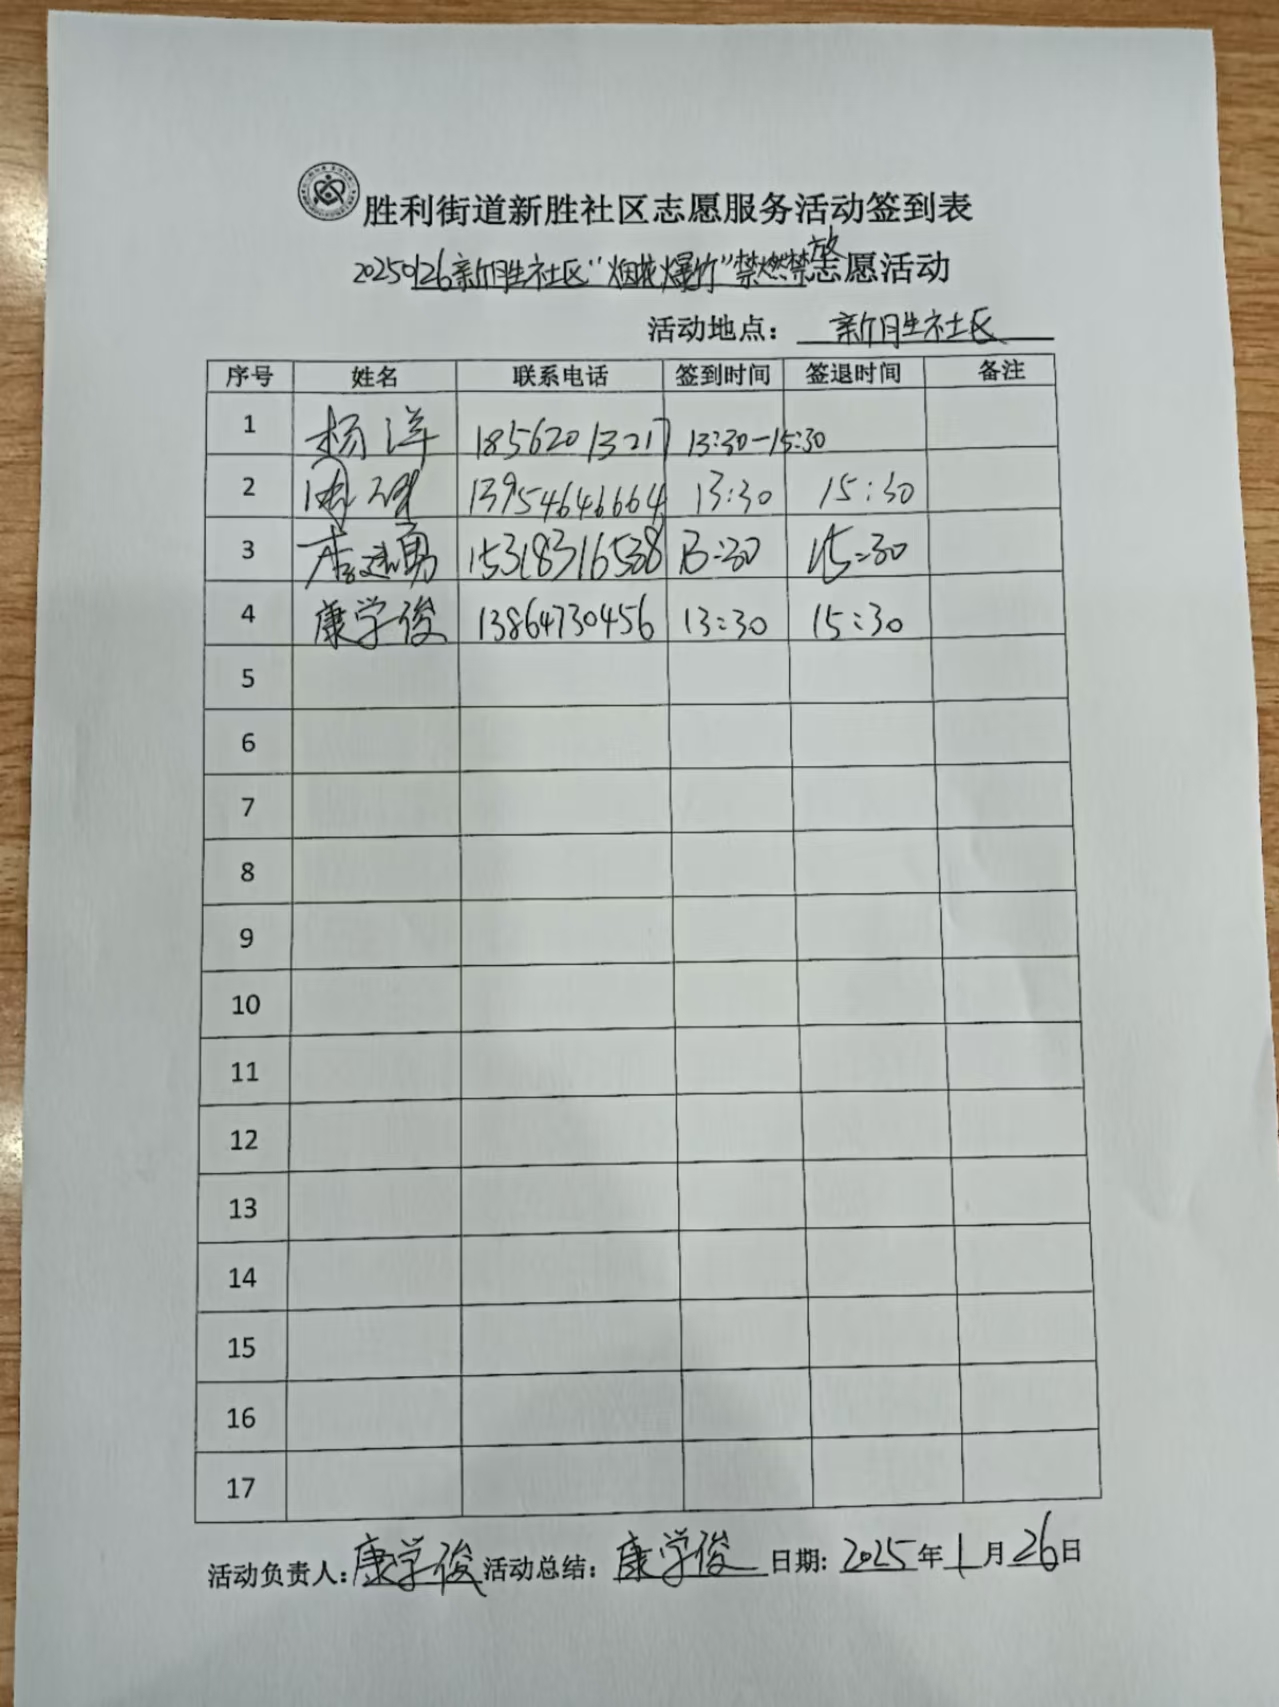 胜利街道新胜社区志愿服务活动签到表
20250126新胜社区“烟花爆竹”禁燃禁放志愿活动
活动地点：新胜社区
序号 姓名 联系电话 签到时间 签退时间 备注
1 杨洋 18562013217 13:30-15:30
2 13954646664 13:30 15:30
3 李建勇 15318316538 13:30 15:30
4 康学俊 13864730456 13:30 15:30
5
6
7
8
9
10
11
12
13
14
15
16
17
活动负责人：康学俊 活动总结：康学俊 日期：2025年1月26日